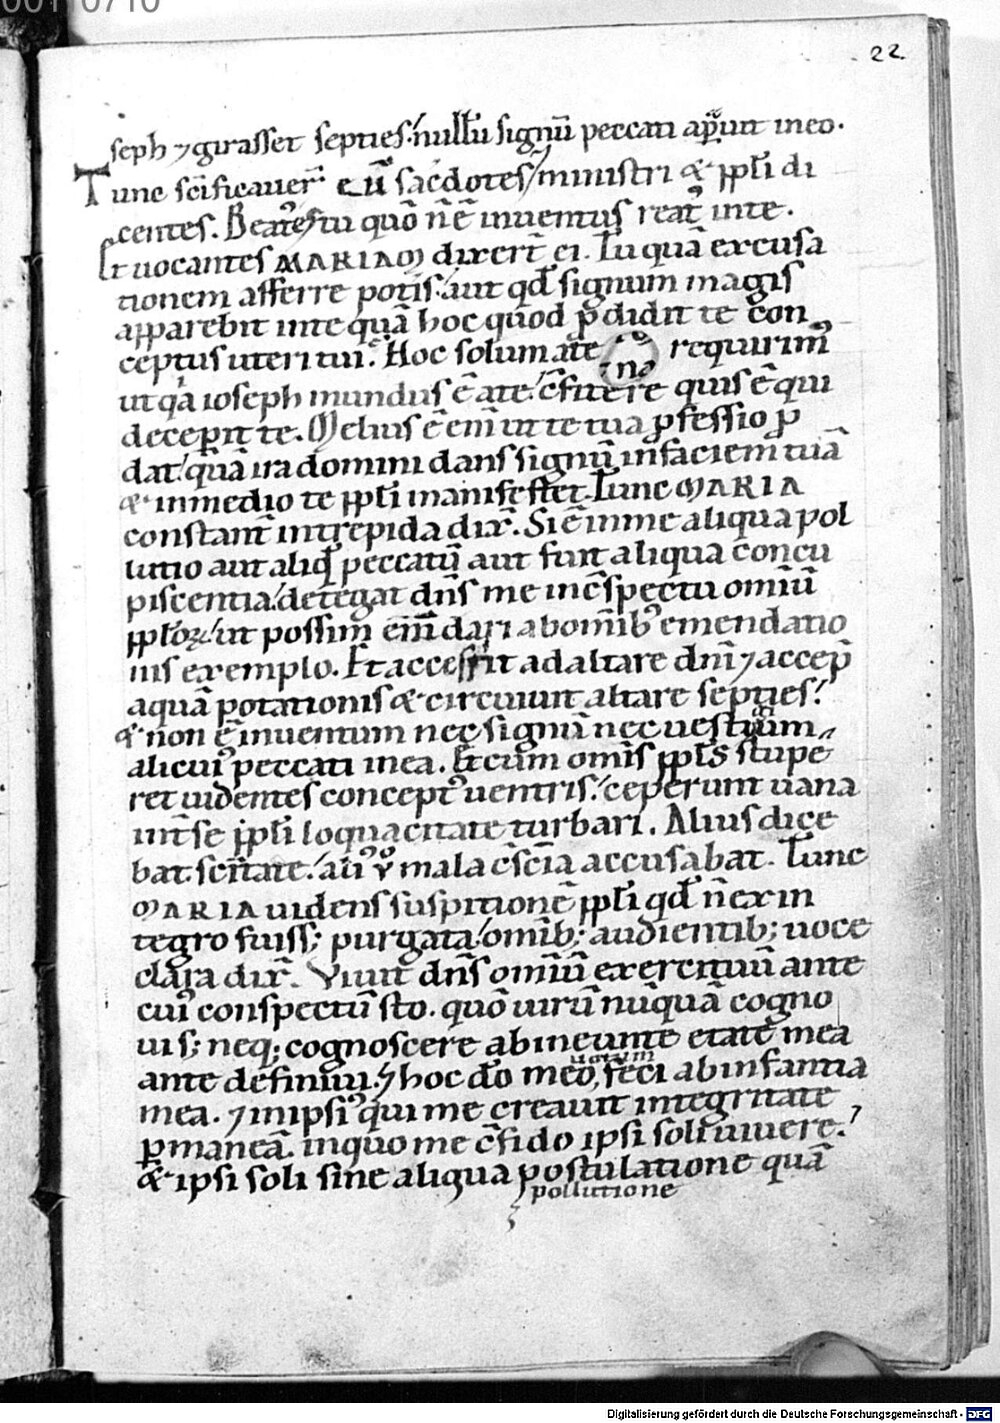 00110710
22
seph ⁊ girasset septies. nullū signū peccati apparuit in eo.
Tunc sc̄ificauer̄ eū sac̄dotes, ministri & ppl̄i di
centes. Beat᷒ es tu quō n̄ ē inuentus reat᷒ in te.
Et uocantes MARIAM dixer̄t ei. Tu quā excusa
tionem afferre potis. aut qd̄ signum magis
apparebit in te quā hoc quod ꝓdidit te con
ceptus uteri tui. Hoc solum a te requirim᷒
ut qa ioseph mundus ē a te. c̄fitere quis ē qui
decepit te. Melius ē em̄ ut te tua ꝓfessio ꝓ
dat. quā ira domini dans signū in faciem tuā
& in medio te ppl̄i manifestet. Tunc MARIA
constant̄ intrepida dix̄. Si ē in me aliqua pol
lutio aut aliqd̄ peccatū aut fuit aliqua concu
piscentia. detegat dn̄s me in c̄spectu omīū
ppl̄oꝝ. ut possim em̄dari ab omīb᷒ emendatio
nis exemplo. Et accessit ad altare dn̄i ⁊ accep̄
aquā potationis & circuiuit altare septies.
& non ē inuentum nec signū nec uestigium
alicui᷒ peccati in ea. Et cum omīs ppl̄s stupe
ret uidentes concept᷒ uentris. ceperunt uana
int̄ se ppl̄i loquacitate turbari. Alius dice
bat. sc̄itatē. ali᷒ ṽ mala c̄sc̄ia accusabat. Tunc
MARIA uidens suspitionē ppl̄i qd̄ n̄ ex in
tegro fuiss; purgata. omīb; audientib; uoce
clara dix̄. Viuit dn̄s omīū exercituū ante
cui᷒ conspectū sto. quō uirū nūquā cogno
uis; neq; cognoscere ab ineunte etate mea
ante definiui. ⁊ hoc dō meo, feci ab infantia
uotum
mea. ⁊ in ipsi᷒ qui me creauit integritate
ꝑmaneā. in quo me c̄fido ipsi soli uiuere.
& ipsi soli sine aliqua postulatione quā
pollutione
Digitalisierung gefördert durch die Deutsche Forschungsgemeinschaft - DFG